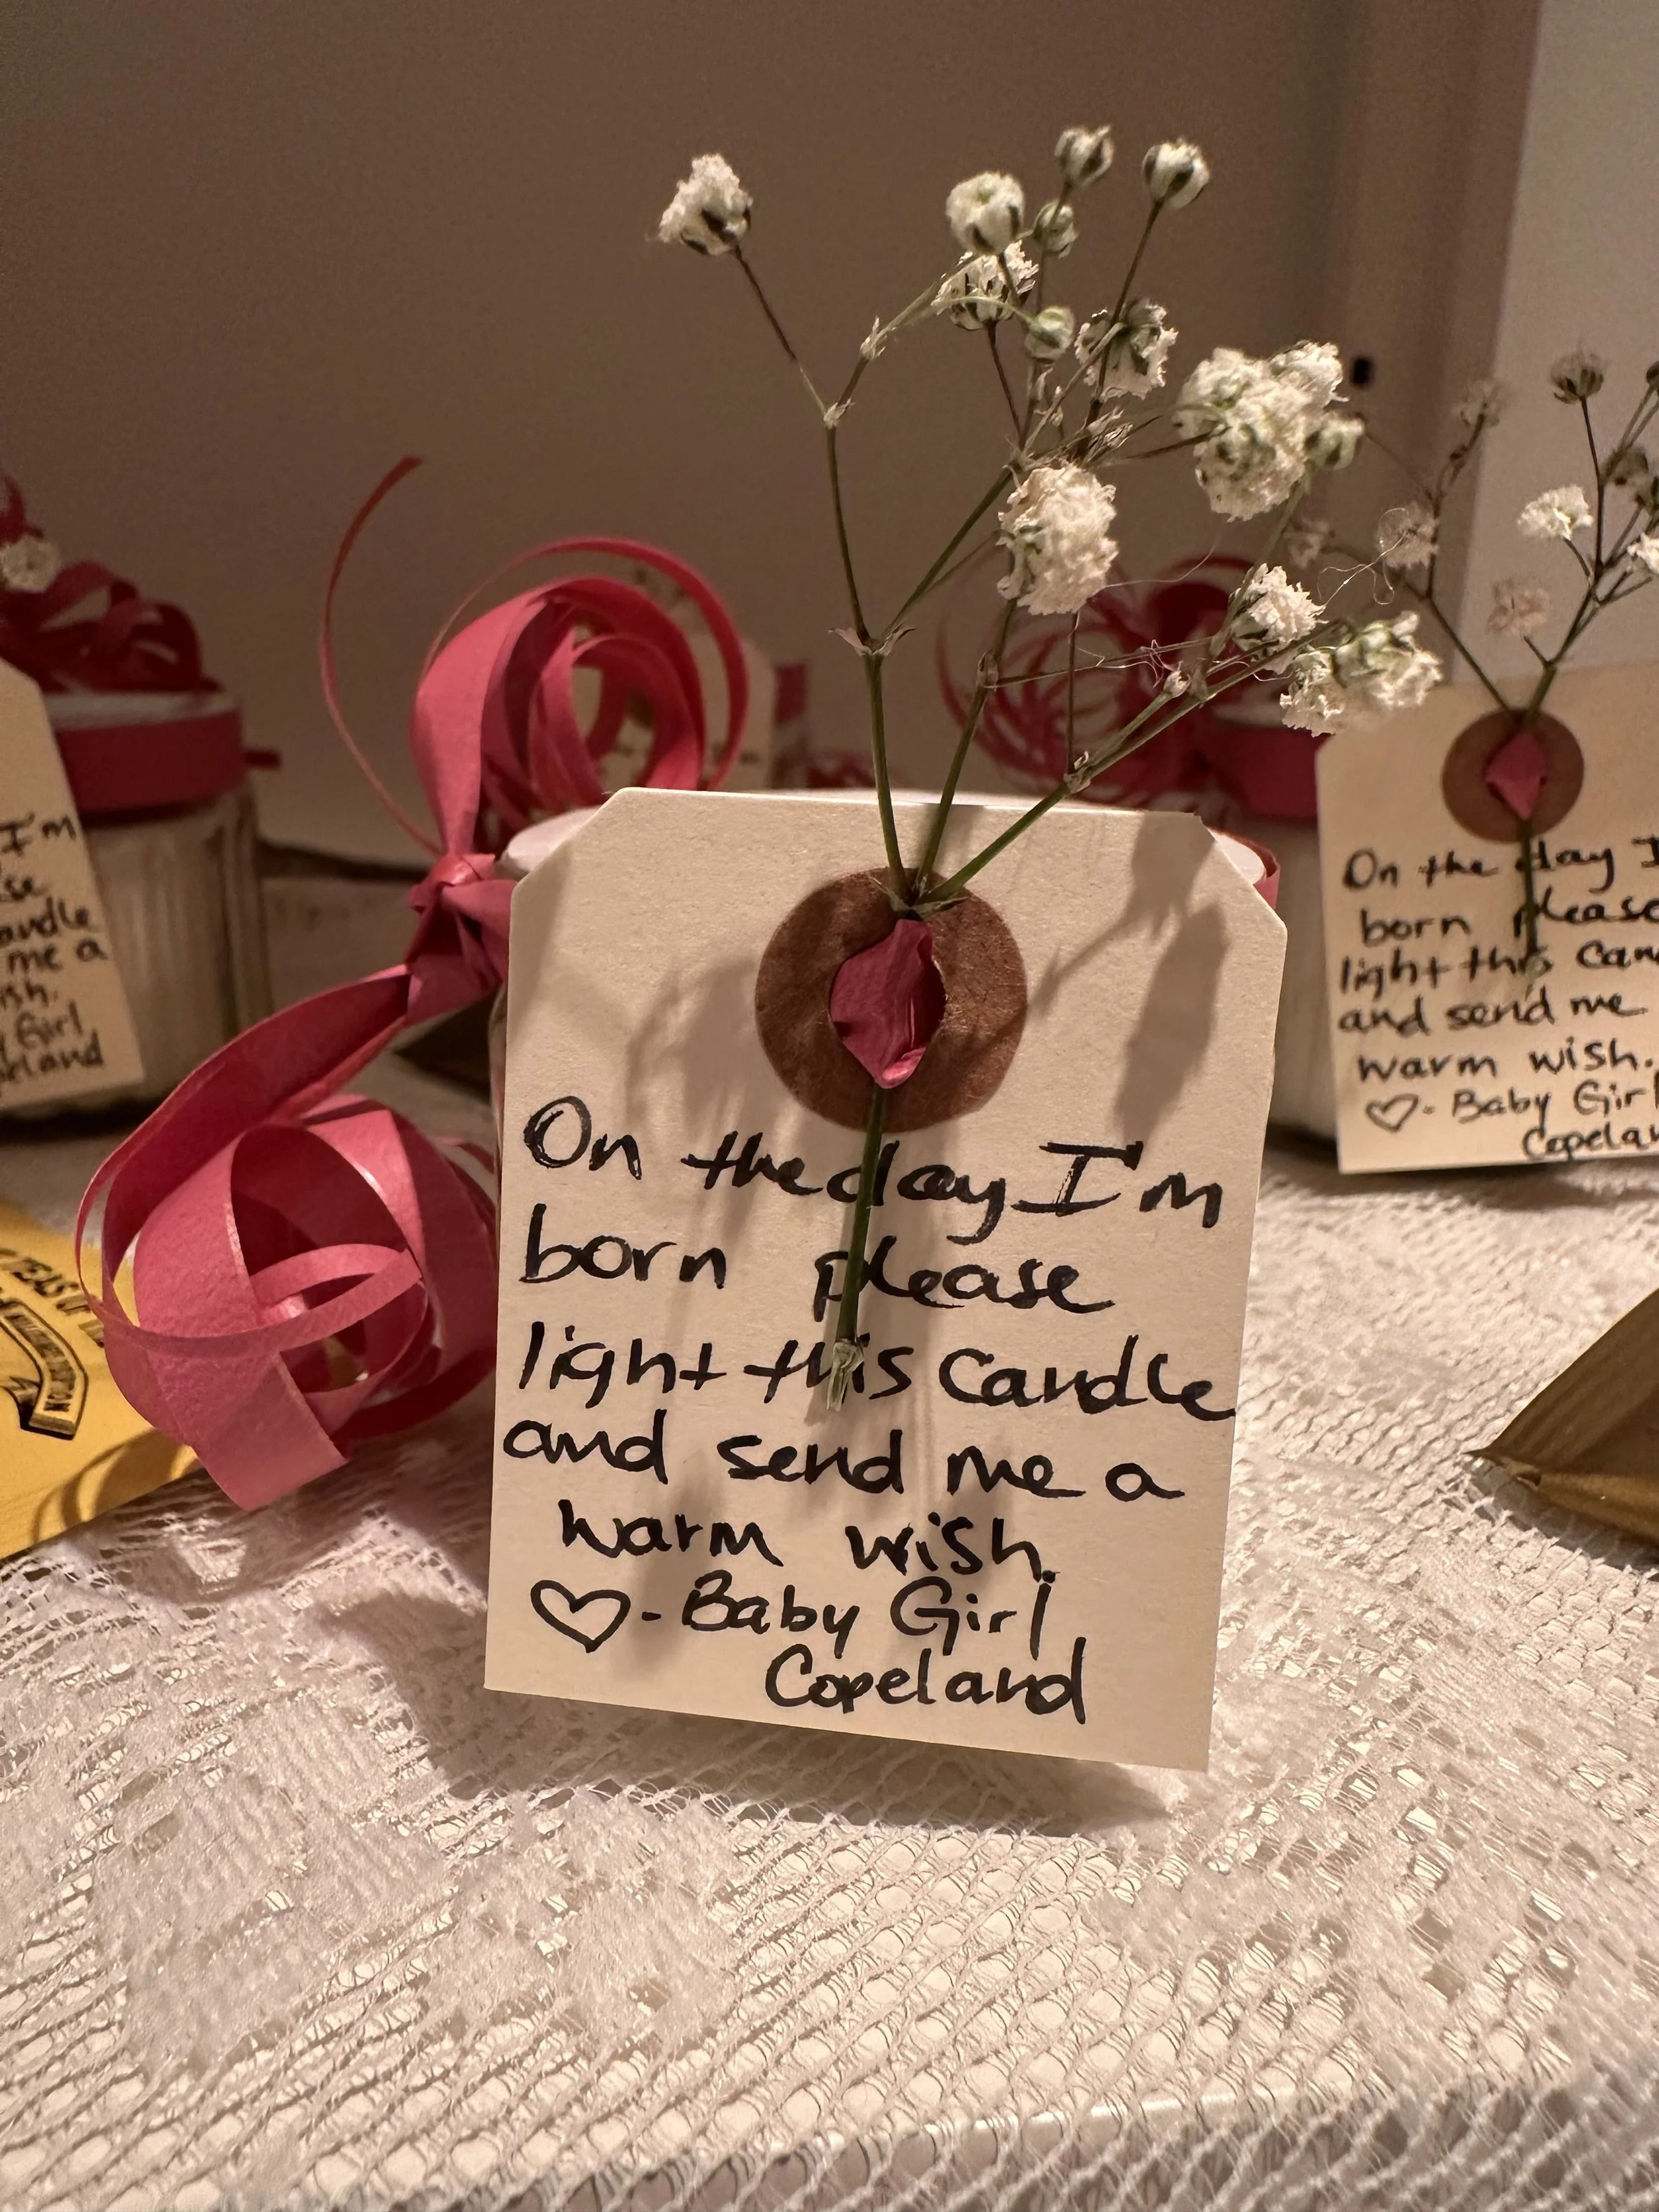 On the day I'm
born please
light this Candle
and send me a
warm wish.
♡- Baby Girl
Copeland
I'm
me a
Girl
On the day I
born please
light this
and send me
warm wish.
♡- Baby Girl
TEAS OF